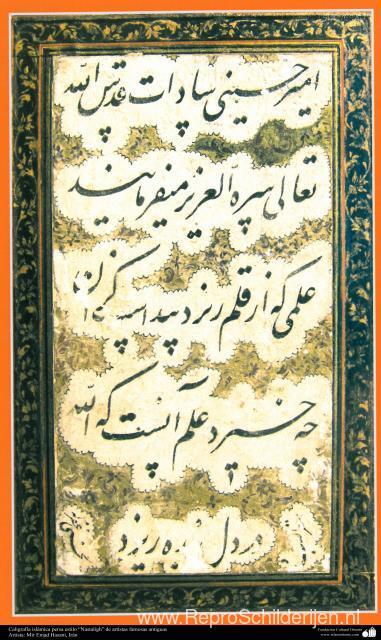 امیر حسینی سادات قدس الله
تعالی سره العزیز میفرمایند
علمی که از قلم ریزد پیداست کزان
چه خیزد علم آنست که الله
در دل ریزد
www.ReproSchilderijen.nl
Caligrafía islámica persa estilo "Nastaligh" de artistas famosas antiguas
Artista: Mir Emad Hasani, Irán
Fundación Cultural Oriente
www.islamoriente.com